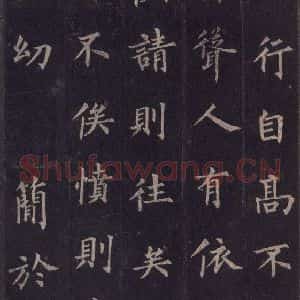 行自高不
聲人有依
請則往矣
不俟慎則
幼簡於
Shufawang.CN